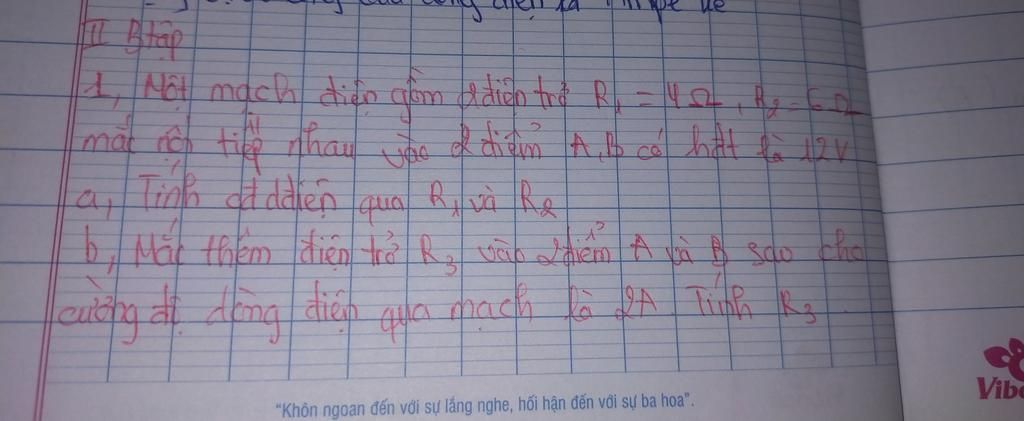 của dòng điện là Ampe kế
II Btập
1, Một mạch điện gồm 2 điện trở R₁ = 4Ω, R₂ = 6Ω
mắc nối tiếp nhau vào 2 điểm A, B có hđt là 12V
a, Tính cđdđiện qua R₁ và R₂
b, Mắc thêm điện trở R₃ vào 2 điểm A và B sao cho
cường độ dòng điện qua mạch là 2A Tính R₃
"Khôn ngoan đến với sự lắng nghe, hối hận đến với sự ba hoa".
Vibo